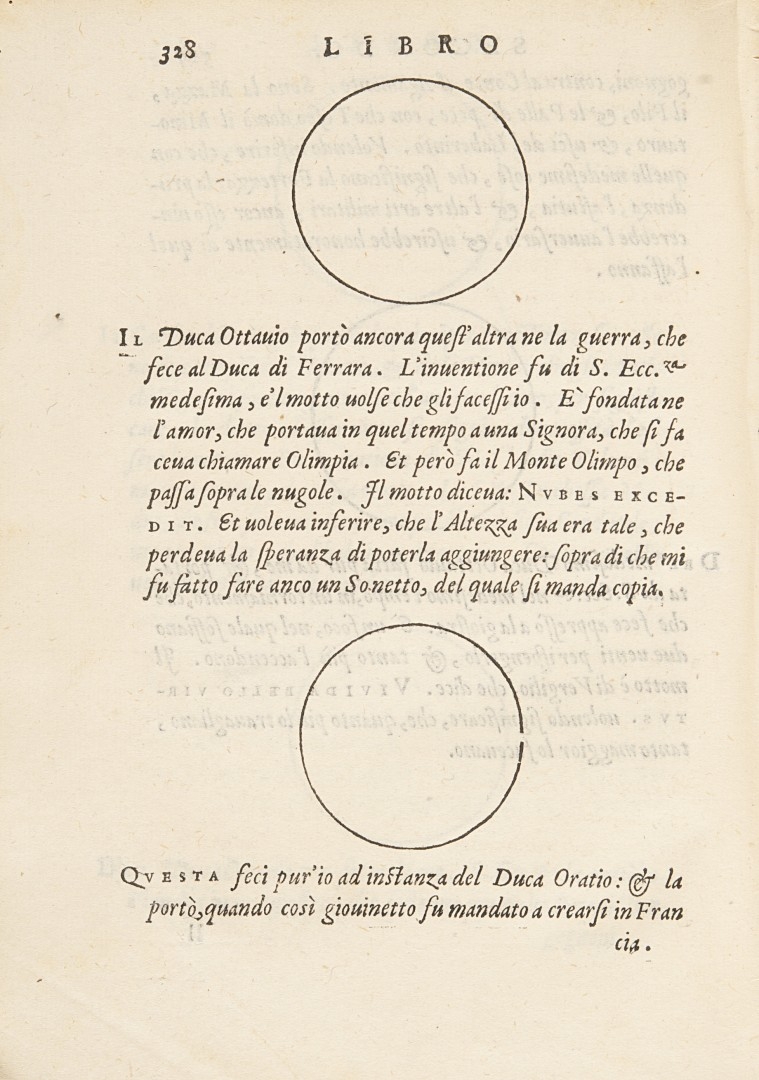 328 LIBRO
IL Duca Ottauio portò ancora quest'altra ne la guerra, che
fece al Duca di Ferrara. L'inuentione fu di S. Ecc.za
medesima, e'l motto uolse che gli facessi io. E` fondata ne
l'amor, che portaua in quel tempo a una Signora, che si fa
ceua chiamare Olimpia. Et però fa il Monte Olimpo, che
passa sopra le nugole. Il motto diceua: NVBES EXCE-
DIT. Et uoleua inferire, che l'Altezza sua era tale, che
perdeua la speranza di poterla aggiungere: sopra di che mi
fu fatto fare anco un Sonetto, del quale si manda copia.
QVESTA feci pur'io ad instanza del Duca Oratio: & la
portò, quando così giouinetto fu mandato a crearsi in Fran
cia.